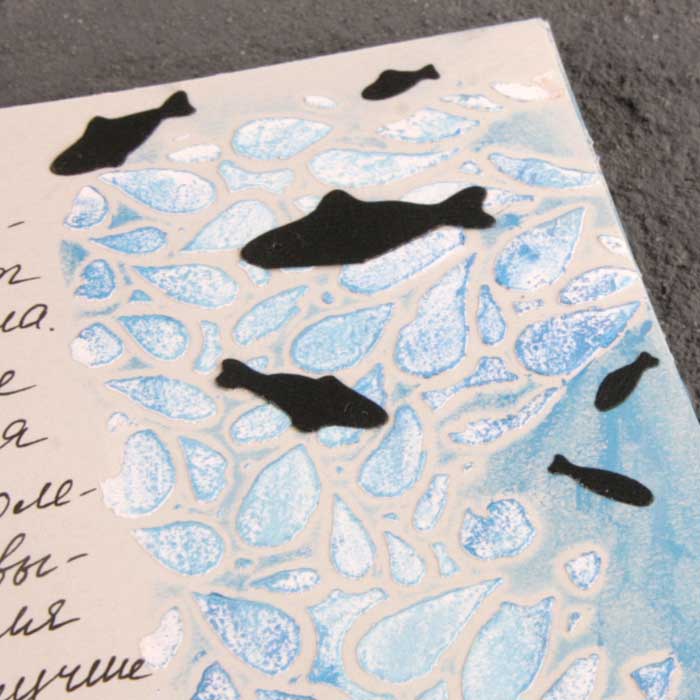 -
т
ла.
е
я
оле-
вы-
ия
лучше